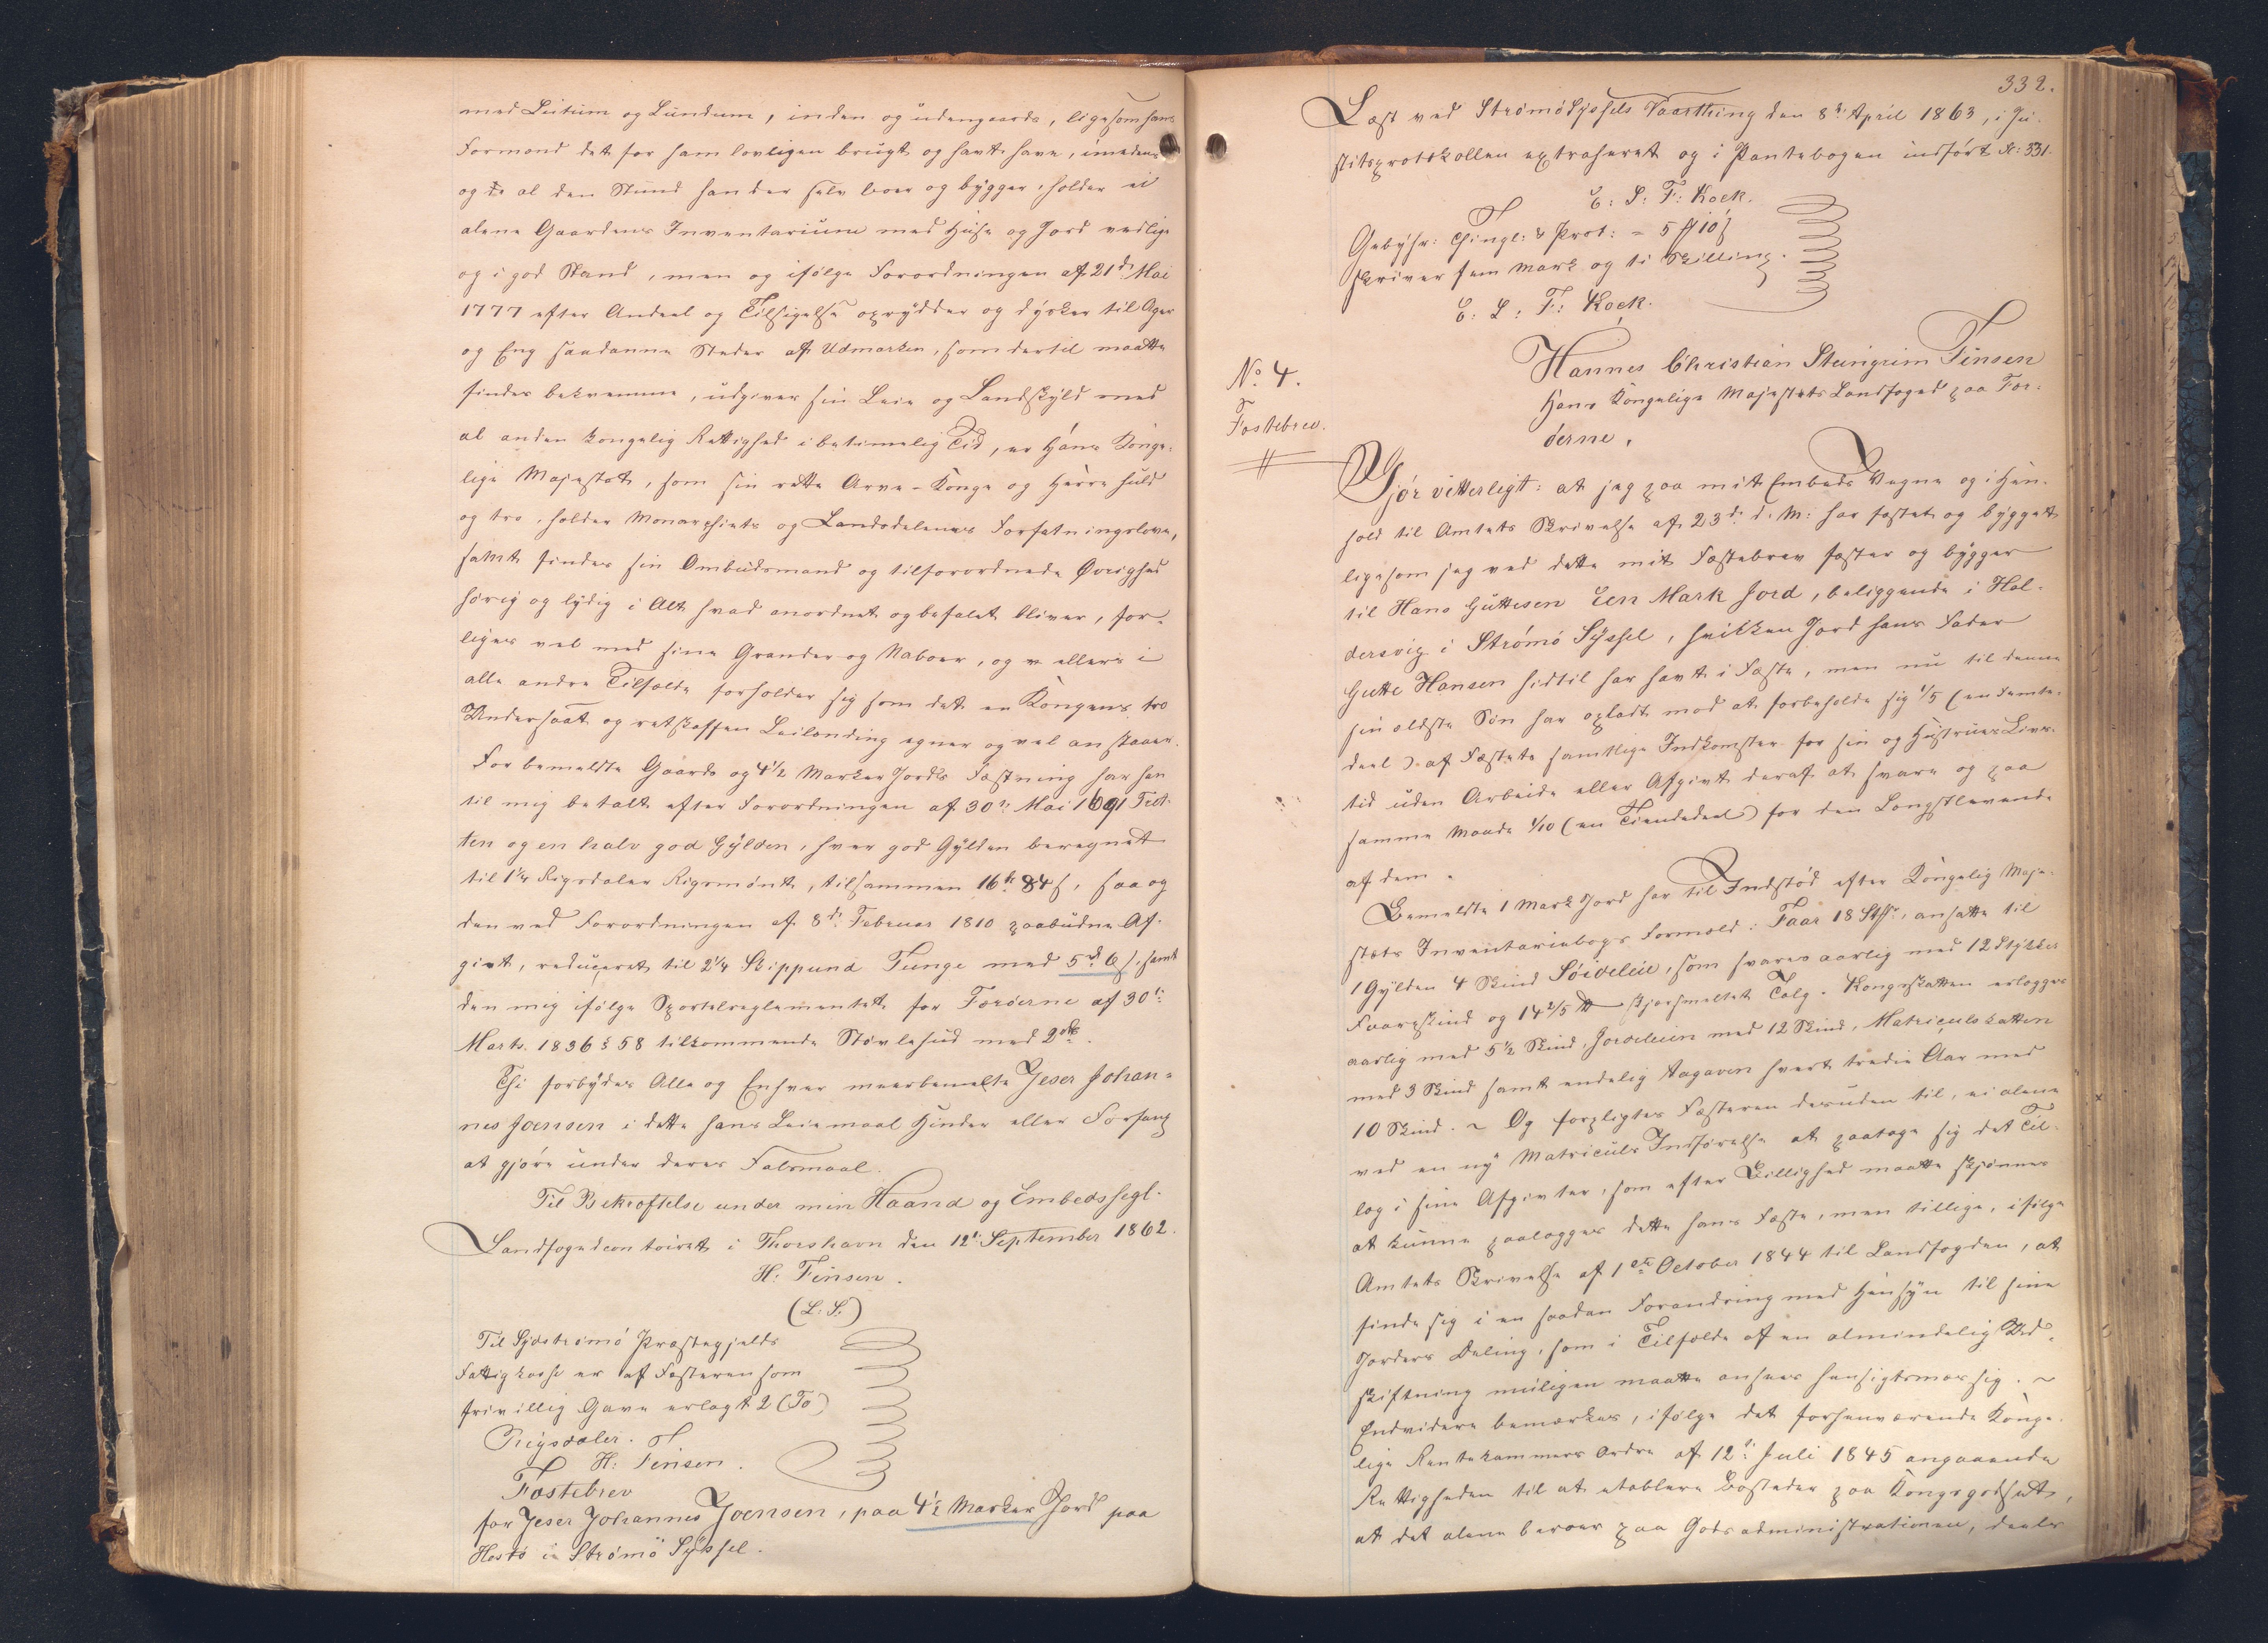 med Lutum og Lundum, inden og udengaards, ligesom hans
Formand det før ham lovligen brugt og havt have, imedens
og al den Stund han der selv boer og bygger, holder ei
alene Gaardens Inventarium med Huse og Jord vedlige
og i god Stand, men og ifølge Forordningen af 21de Mai
1777 efter Andeel og Tilsigelse oprydder og dyrker til Ager
og Eng saadanne Steder af Udmarken, som dertil maatte
findes beqvemme, udgiver sin Leie og Landskyld med
al anden kongelig Rettighed i betimelig Tid, er Hans Konge-
lige Majestæt, som sin rette Arve-Konge og Herre huld
og tro, holder Monarchiets og Landsdelenes Forfatningslove,
samt findes sin Ombudsmand og tilforordnede Øvrighed
hørig og lydig i Alt hvad anordnet og befalet bliver, for-
liges vel med sine Grander og Naboer, og ellers i
alle andre Tilfælde forholder sig som det en Kongens tro
Undersaat og retskaffen Leilænding egner og vel anstaaer.
For bemeldte Gaards og 4½ Marker Jords Fæstning har han
til mig betalt efter Forordningen af 30te Mai 1691 Tret-
ten og en halv god Gylden, hver god Gylden beregnet
til 1¼ Rigsdaler Rigsmønt, tilsammen 16 rd 84 s, saa og
den ved Forordningen af 8de Februar 1810 paabudne Af-
givt, reduceret til 2¼ Skippund Tunge med 5 rd 6 s, samt
den mig ifølge Sportelreglementet for Færøerne af 30te
Marts 1836 § 58 tilkommende Støvlehud med 2 rd.
Thi forbydes Alle og Enhver meerbemelte Jeser Johan-
nes Joensen i dette hans Leiemaal Hinder eller Forfang
at gjøre under deres Falsmaal.
Til Bekræftelse under min Haand og Embedssegl.
Landfogedcontoiret i Thorshavn den 12te September 1862.
H: Finsen.
(L: S:)
Til Sydstrømø Præstegjelds
Fattigkasse er af Fæsteren som
frivillig Gave erlagt 2 (To)
Rigsdaler.
H: Finsen.
Fæstebrev
for Jeser Johannes Joensen, paa 4½ Marker Jord paa
Hestø i Strømø Syssel.
332.
Læst ved Strømø Syssels Vaarthing den 8de April 1863, i Ju-
stitsprotokollen extraheret og i Pantebogen indført N: 331.
E: L: F: Kock.
Gebyhr: Thingl: & Prot: = 5 # 10 s
skriver fem Mark og ti Skilling.
E: L: F: Kock.
Hannes Christian Steingrim Finsen
Hans Kongelige Majestæts Landfoged paa Fær-
øerne.
No. 4.
Fæstebrev.
Gjør vitterligt: at jeg paa mit Embeds Vegne og i Hen-
hold til Amtets Skrivelse af 23de d. M: har fæstet og bygget
ligesom jeg ved dette mit Fæstebrev fæster og bygger
til Hans Guttesen Een Mark Jord, beliggende i Hal-
dersvig i Strømø Syssel, hvilken Jord hans Fader
Gutte Hansen hidtil har havt i Fæste, men nu til denne
sin ældste Søn har opladt mod at forbeholde sig 1/5 (en Femte-
deel) af Fæstets samtlige Indkomster for sin og Hustrues Livs-
tid uden Arbeide eller Afgivt deraf at svare og paa
samme Maade 1/10 (en Tiendedeel) for den Længstlevende
af dem.
Bemeldte 1 Mark Jord har til Indstød efter Kongelig Maje-
stæts Inventariebogs Formeld: Faar 18 Stkr., ansatte til
1 Gylden 4 Skind Søideleie, som svares aarlig med 12 Stykker
Faareskind og 14 2/5 ℔ skjærsmeltet Talg. Kongeskatten erlægges
aarlig med 5½ Skind, Jordeleien med 12 Skind, Matriculskatten
med 3 Skind samt endelig Tagaven hvert tredie Aar med
10 Skind. ~ Og forpligtes Fæsteren desuden til, ei alene
ved en ny Matriculs Indførelse at paatage sig det Til-
læg i sine Afgivter, som efter Billighed maatte skjønnes
at kunne paalægges dette hans Fæste, men tillige, ifølge
Amtets Skrivelse af 1ste October 1844 til Landfogden, at
finde sig i en saadan Forandring med Hensyn til sine
Jorders Deling, som i Tilfælde af en almindelig Ud-
skiftning muligen maatte ansees hensigtsmæssig. ~
Endvidere bemærkes, ifølge det forhenværende Konge-
lige Rentekammers Ordre af 12te Juli 1845 angaaende
Rettigheden til at etablere Bosteder paa Kongsgodset,
at det alene beroer paa Godsadministrationen, deels